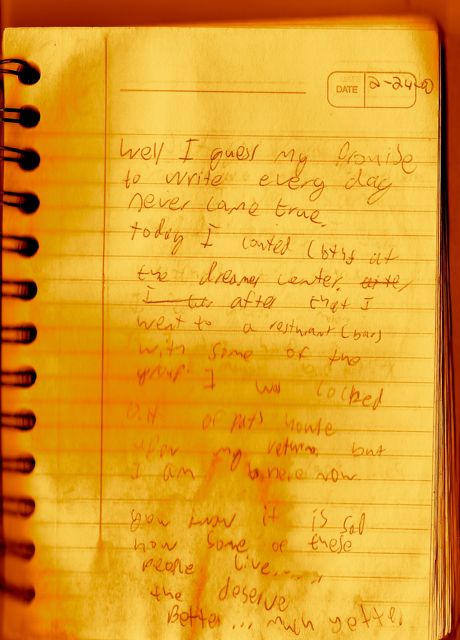 DATE 2-24-0
Well I guess my Promise
to write every day
never came true.
today I conted Cloths at
the dreamer center. after
I after that I
went to a resturant (bar)
with some of the
group. I was locked
out of pats house
upon my return, but
I am here now.
you know it is sad
how some of these
people live.....
the deserve
Better... much better